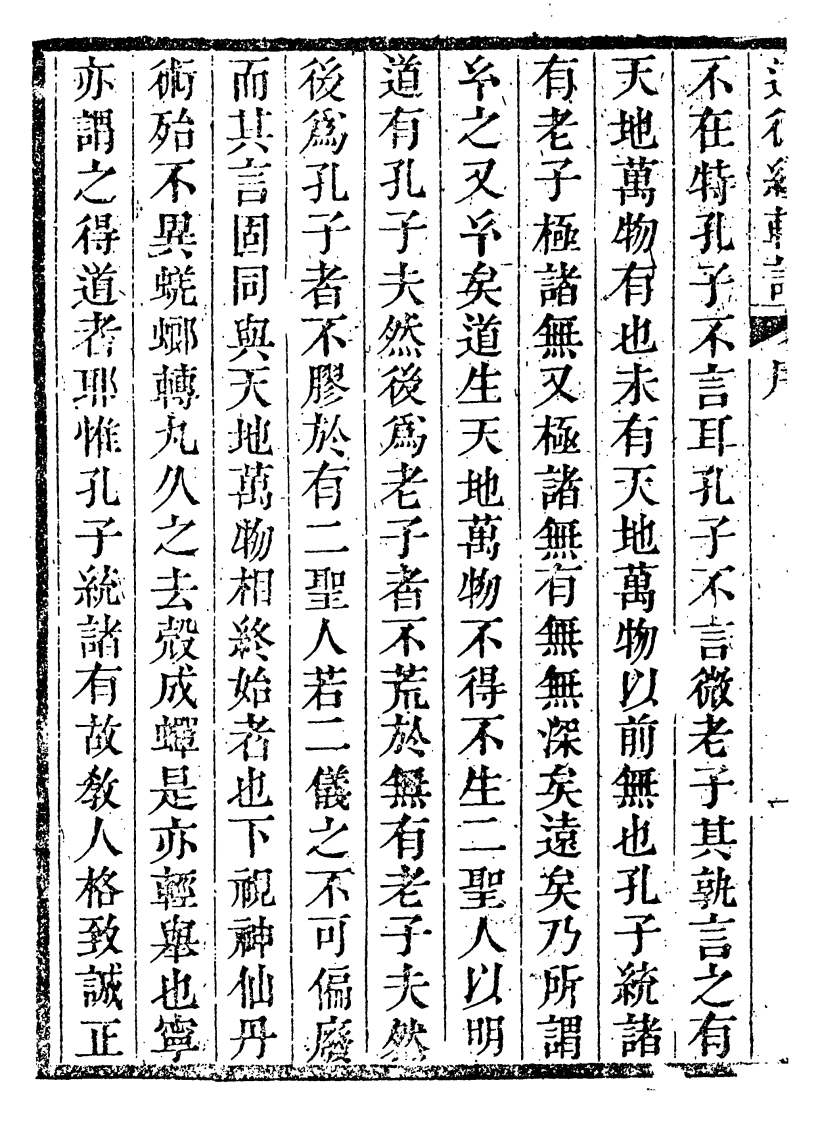 不在特孔子不言耳孔子不言微老子其孰言之有
天地萬物有也未有天地萬物以前無也孔子統諸
有老子極諸無又極諸無有無無深矣遠矣乃所謂
𤣥之又𤣥矣道生天地萬物不得不生二聖人以明
道有孔子夫然後爲老子者不荒於無有老子夫然
後爲孔子者不膠於有二聖人若二儀之不可偏廢
而其言固同與天地萬物相終始者也下視神仙丹
術殆不異蜣螂轉丸久之去殻成蟬是亦輕舉也寧
亦謂之得道者耶惟孔子統諸有故敎人格致誠正